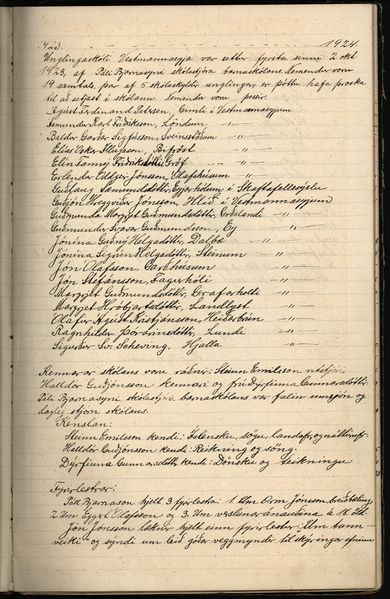 1924.
Unglingaskóli Vestmannaeyja var settur fyrsta sinni 2 okt
1923, af Páli Bjarnasyni skólastjóra barnaskólans. Nemendur voru
19 samtals, þar af 5 skólaskyldir unglingar er þóttu hafa þroska
til að setjast í skólann Nemendur voru þessir:
Ágúst Ferdinand Petersen, Gimli í Vestmannaeyjum
Ásmundur Karl Friðriksson, Löndum - " -
Baldur Garðar Sigfússon, Sveinsstöðum - " -
Elías Illugason, Bifröst - " -
Elín Fanney Friðriksdóttir Gröf - " -
Erlendur Oddgeir Jónsson, Ólafshúsum - " -
Guðlaug Sæmundsdóttir, Eyjarhólum í Skaftafellssýslu
Guðjón Hreggviður Jónsson, Hlíð í Vestmannaeyjum
Guðmunda Margrét Guðmundsdóttir, - " -
Guðmundur Guðmundsson, Ey - " -
Jónína Guðný Helgadóttir, Dalbæ - " -
Jónína Sigrún Helgadóttir, Steinum - " -
Jón Ólafsson, Garðhúsum - " -
Jón Stefánsson, Fagurhóli - " -
Margrét Guðmundsdóttir, Grafarholti - " -
Margrét Hróbjartsdóttir, Landlyst - " -
Ólafur Ágúst Kristjánsson, Heiðarbrún - " -
Ragnhildur Þórðardóttir, Lundi - " -
Sigurður Sv. Scheving, Hjalla - " -
Kennarar skólans voru ráðnir: Steinn Emilsson
Halldór Guðjónsson kennari og frú Dýrfinna Gunnarsdóttir
Páli Bjarnasyni skólastjóra barnaskólans var falin umsjón og
dagleg stjórn skólans.
Kenslan:
Steinn Emilsson kendi: Íslensku, sögu, landafr. og náttúrufr.
Halldór Guðjónsson kendi: Reikning og söng.
Dýrfinna Gunnarsdóttir, kendi: Dönsku og teikningu.
Fyrirlestrar:
Páll Bjarnason hjelt 3 fyrirlestra: 1 Um Orm Jónsson
2 Um Eggert Ólafsson og 3. Um á 18. öld.
Jón Jónsson læknir hjelt einn fyrirlestur Um tann-
veiki og sýndi um leið góðar veggmyndir til skýringar efninu